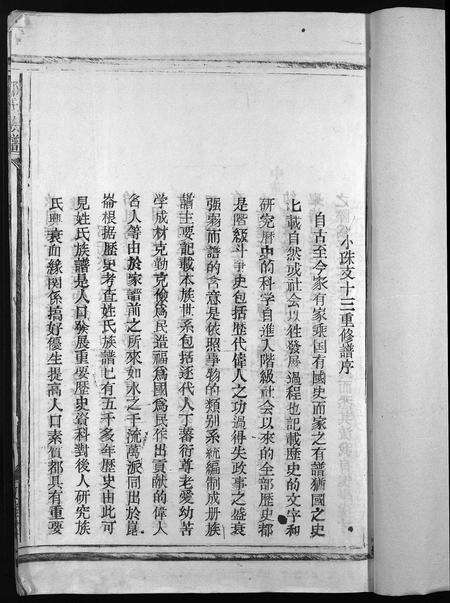 小珠支十三重修譜序
自古至今家有家乘国有國史而家之有譜猶國之史
也載自然或社会以往發展过程也記載歷史的文字和
研究歷史的科学自進入階級社会以來的全部歷史都
是階級斗爭史包括歷代偉人之功過得失政事之盛衰
强弱而譜的含意是依照事物的類别系統編制成册族
譜主要記載本族世系包括逐代人丁蕃衍尊老愛幼苦
学成材克勤克儉爲民造福爲國爲民作出貢献的偉人
名人等由於家譜前之所來如水之千流萬派同出於崑
崙根据歷史考查姓氏族譜已有五千亥年歷史由此可
見姓氏族譜是人口發展重要歷史資料對後人研究族
氏興衰血緣関係搞好優生提高人口素質都具有重要
族譜